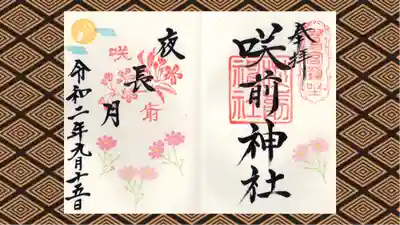 奉拝
咲前神社
夜
長
月
咲
前
令和二年九月十五日